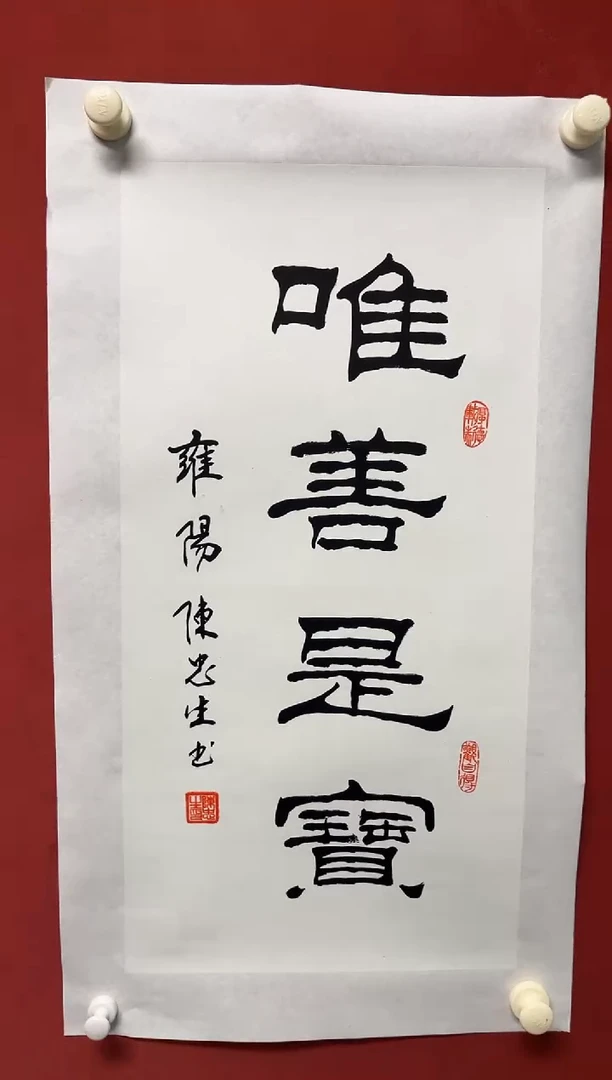 唯善是寶
雍陽陳忠生书